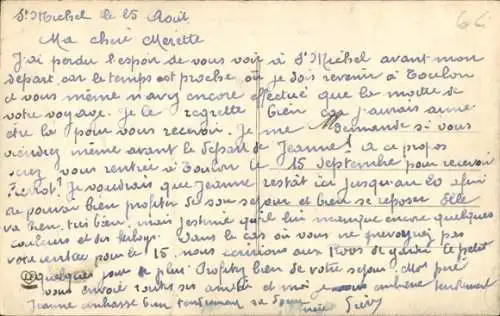 St Michel le 25 Août
66
Ma chère Merette
J'ai perdu l'espoir de vous voir à St Michel avant mon
départ car le temps est proche où je dois revenir à Toulon
et vous même n'avez encore effectué que la moitié de
votre voyage. Je le regrette bien car j'aurais aimé
être là pour vous recevoir. Je me demande si vous
viendrez même avant le départ de Jeanne! A ce propos
serez vous rentrée à Toulon le 15 Septembre pour recevoir
Pierrot? Je voudrais que Jeanne restât ici jusqu'au 20 afin
de pouvoir bien profiter de son séjour et bien se reposer. Elle
va bien, très bien, mais j'estime qu'il lui manque encore quelques
couleurs et des kilogs. Dans le cas où vous ne prévoyez pas
votre rentrée pour le 15, nous écririons aux de garder le petit
quelques jours de plus. Profitez bien de votre séjour. Mon
vous envoie toutes ses amitiés et moi je vous embrasse tendrement
Jeanne embrasse bien tendrement sa